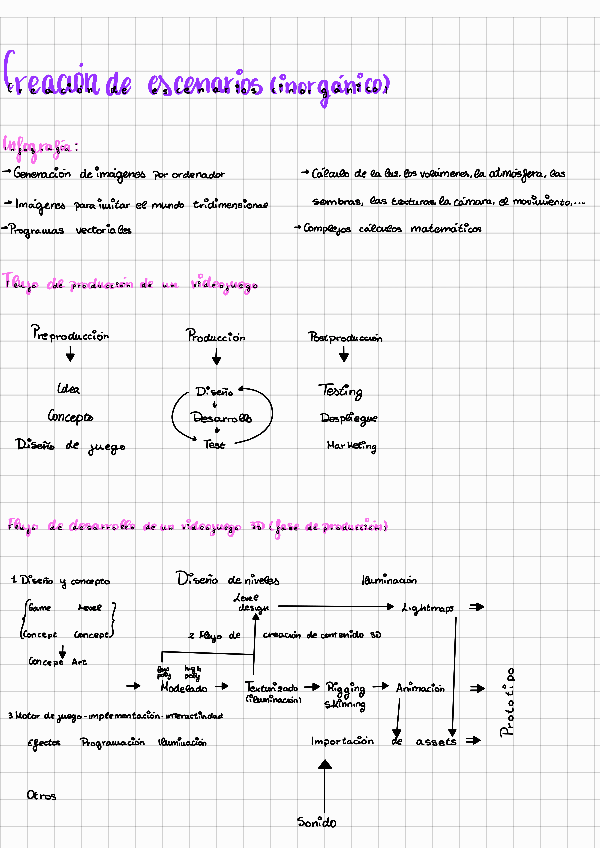 Creación de escenarios (inorgánico)
Infografía:
→ Generación de imágenes por ordenador
→ Imágenes para imitar el mundo tridimensional
→ Programas vectoriales
→ Cálculo de la luz, los volúmenes, la atmósfera, las
sombras, las texturas, la cámara, el movimiento,...
→ Complejos cálculos matemáticos
Flujo de producción de un videojuego
Preproducción
Idea
Concepto
Diseño de juego
Producción
Diseño
Desarrollo
Test
Postproducción
Testing
Despliegue
Marketing
Flujo de desarrollo de un videojuego 3D (fase de producción)
1 Diseño y concepto
Game Level
Concept Concept
Concept Art
Diseño de niveles
Level
design
Iluminación
Lightmaps
2 Flujo de creación de contenido 3D
low high
poly poly
Modelado → Texturizado → Rigging → Animación
(iluminación) skinning
3 Motor de juego - implementación - interactividad
Efectos Programación Iluminación
Importación de assets
Prototipo
Otros
Sonido